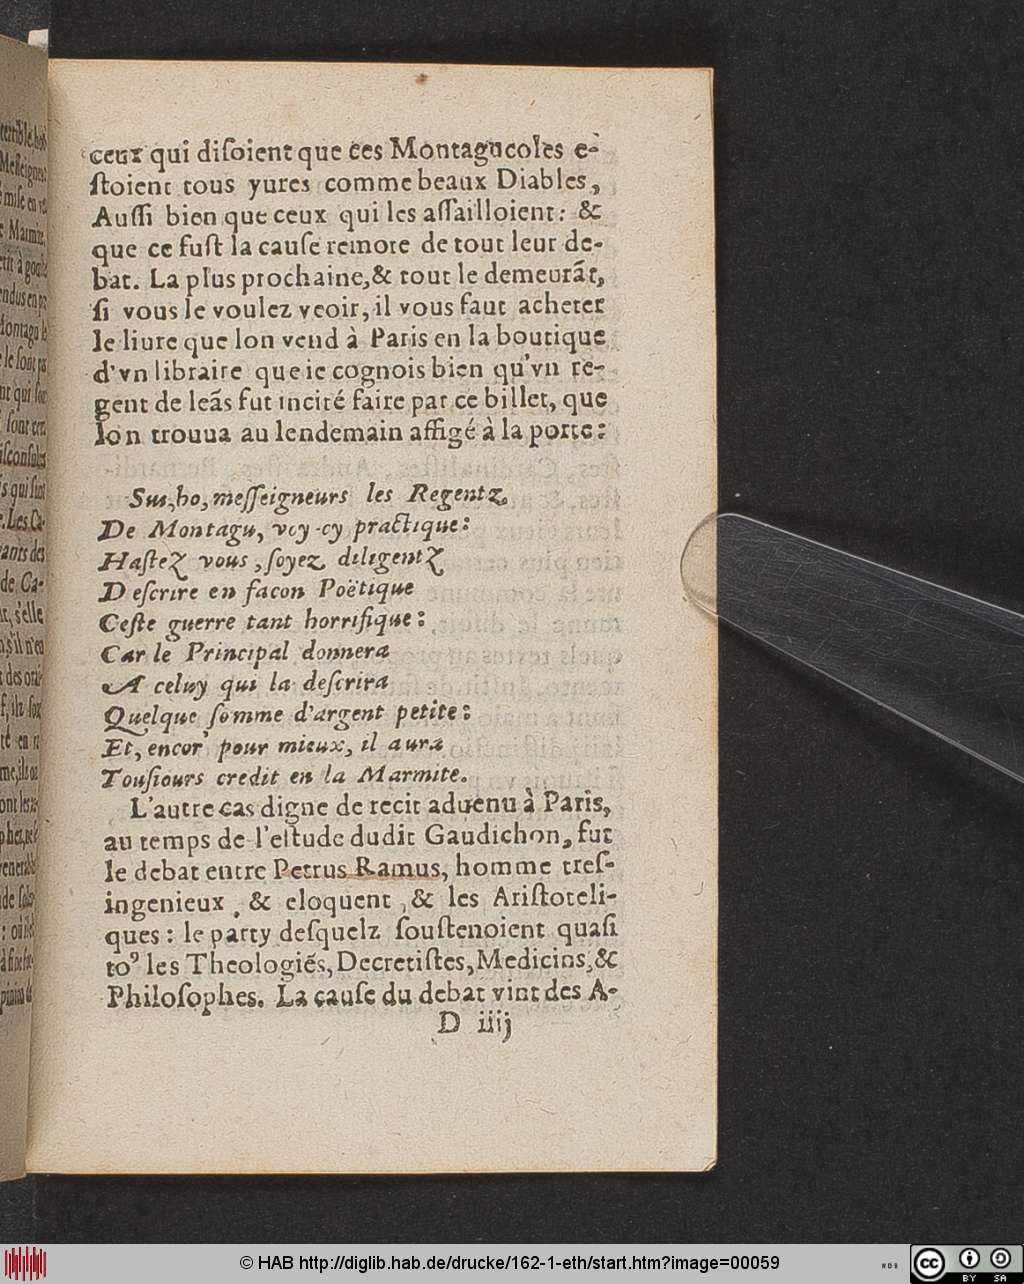 ceux qui diſoient que ces Montagucoles e-
ſtoient tous yures comme beaux Diables,
Auſſi bien que ceux qui les aſſailloient: &
que ce fuſt la cauſe remote de tout leur de-
bat. La plus prochaine, & tout le demeurãt,
ſi vous le voulez veoir, il vous faut acheter
le liure que lon vend à Paris en la boutique
d'vn libraire que ie cognois bien qu'vn re-
gent de leãs fut incité faire par ce billet, que
lon trouua au lendemain affigé à la porte:
Sus, ho, meſſeigneurs les Regentz
De Montagu, voy-cy practique:
Haſtez vous, ſoyez diligentz
Deſcrire en facon Poëtique
Ceſte guerre tant horrifique:
Car le Principal donnera
A celuy qui la deſcrira
Quelque ſomme d'argent petite:
Et, encor' pour mieux, il aura
Touſiours credit en la Marmite.
L'autre cas digne de recit aduenu à Paris,
au temps de l'eſtude dudit Gaudichon, fut
le debat entre Petrus Ramus, homme treſ-
ingenieux, & eloquent, & les Ariſtoteli-
ques: le party deſquelz ſouſtenoient quaſi
toꝰ les Theologiẽs, Decretiſtes, Medicins, &
Philoſophes. La cauſe du debat vint des A-
D iiij
© HAB http://diglib.hab.de/drucke/162-1-eth/start.htm?image=00059
cc BY SA